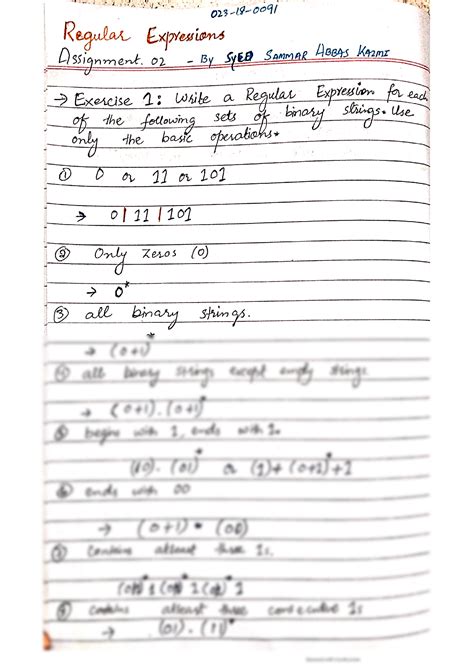 023-18-0091
Regular Expressions
Assignment. 02 - By SYED SAMMAR ABBAS KAZMI
→ Exercise 1: Write a Regular Expression for each
of the following sets of binary strings. Use
only the basic operations.
① 0 or 11 or 101
→ 0 | 11 | 101
② Only Zeros (0)
→ 0*
③ all binary strings.
→ (0+1)*
④ all binary strings except empty strings.
→ (0+1).(0+1)*
⑤ begins with 1, ends with 1.
or (1)+(0+1)*+1
⑥ ends with 00
→ (0+1)* (00)
Contains atleast three 1s.
contains atleast three consecutive 1s